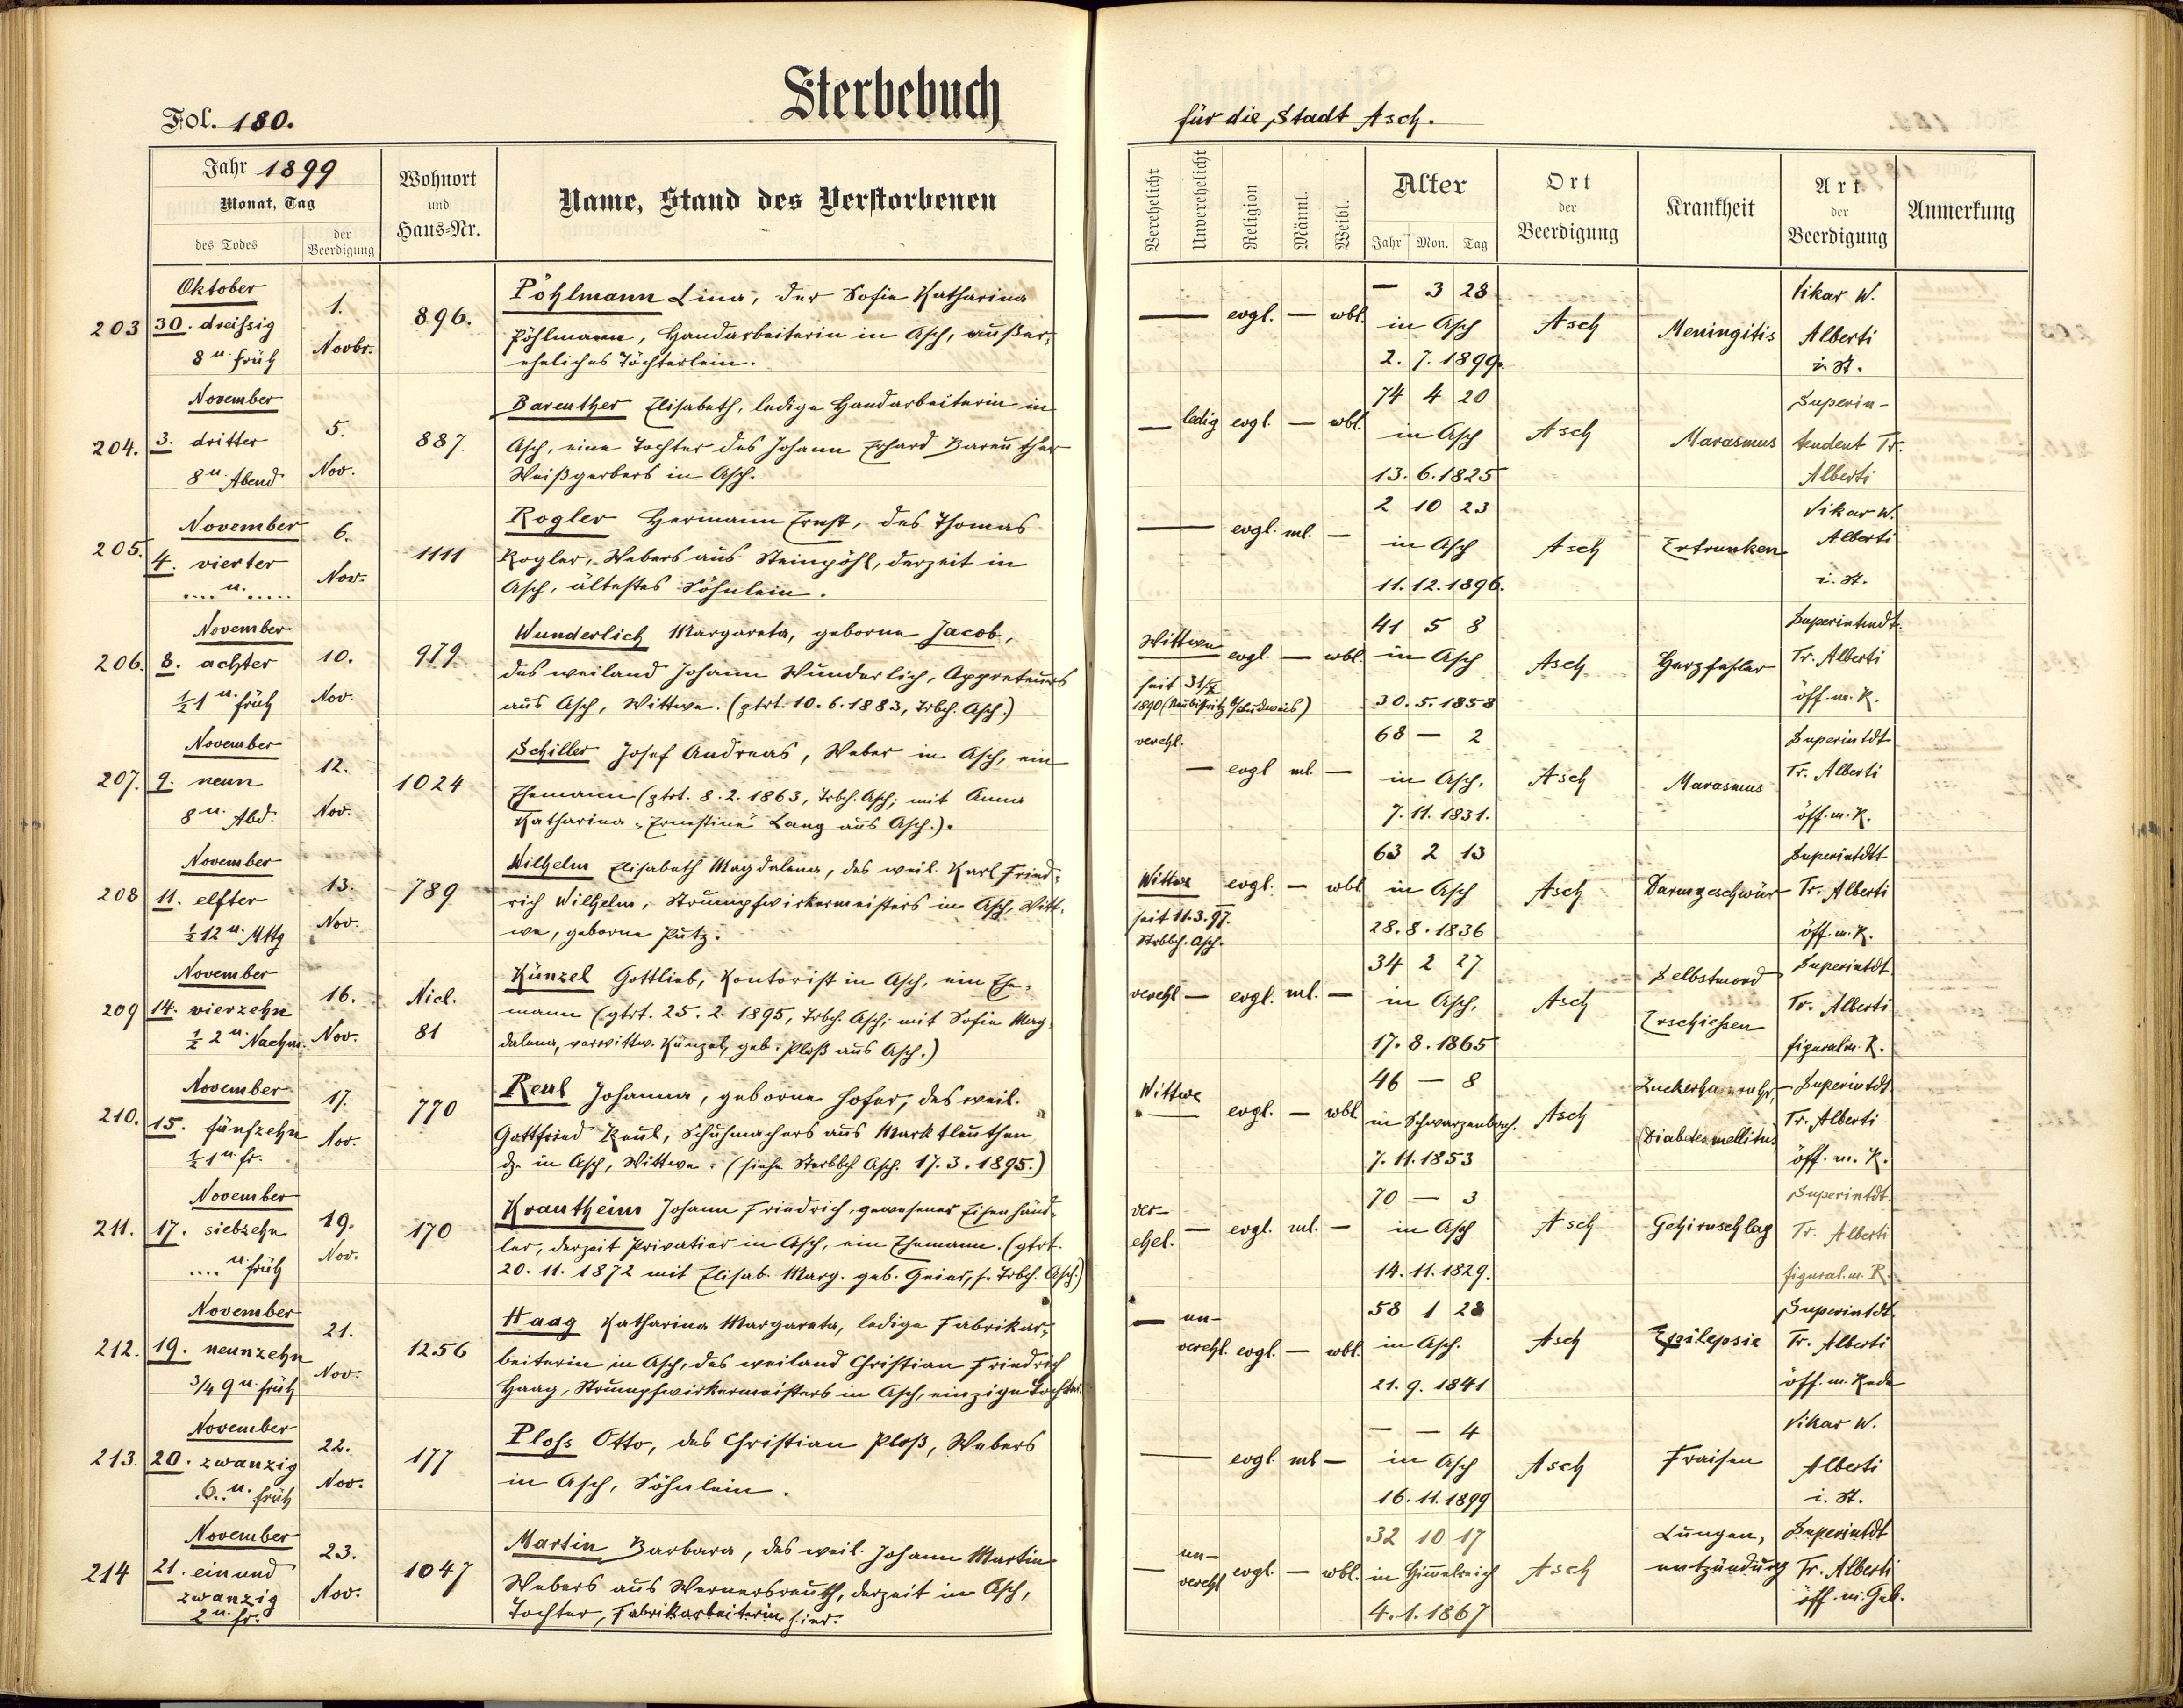 Sterbebuch
Fol. 180.
Jahr 1899
Monat, Tag
des Todes
der Beerdigung
Wohnort
und
Haus=Nr.
Name, Stand des Verstorbenen
203
Oktober
30. dreißig
8 u. früh
1.
Novbr.
896.
Pöhlmann Lina, der Sofie Katharina
Pöhlmann, Handarbeiterin in Asch, außer=
eheliches Töchterlein.
204.
November
3. dritter
8 u. Abend
5.
Nov.
887
Bareuther Elisabeth, ledige Handarbeiterin in
Asch, eine Tochter des Johann Erhard Bareuther
Weißgerbers in Asch.
205.
November
4. vierter
.... u. .....
6.
Nov.
1111
Rogler Hermann Ernst, des Thomas
Rogler, Webers aus Steinpöhl, derzeit in
Asch, ältestes Söhnlein.
206.
November
8. achter
½1 u. früh
10.
Nov.
979
Wunderlich Margareta, geborne Jacob,
des weiland Johann Wunderlich, Appreteurs
aus Asch, Wittwe. (gtrt. 10.6.1883, Trbch. Asch.)
207.
November
9. neun
8 u. Abd.
12.
Nov.
1024
Schiller Josef Andreas, Weber in Asch, ein
Ehemann (gtrt. 8.2.1863, Trbch. Asch; mit Anna
Katharina „Ernestine“ Lang aus Asch.).
208
November
11. elfter
½12 u. Mttg
13.
Nov.
789
Wilhelm Elisabeth Magdalena, des weil. Karl Fried=
rich Wilhelm, Strumpfwirkermeisters in Asch, Witt=
we, geborne Putz.
209
November
14. vierzehn
½2 u. Nachm.
16.
Nov.
Nicl.
81
Künzel Gottlieb, Kontorist in Asch, ein Ehe=
mann (gtrt. 25.2.1895, Trbch. Asch; mit Sofie Mag=
dalena, verwittw. Künzel, geb. Ploß aus Asch.)
210.
November
15. fünfzehn
½1 u. fr.
17.
Nov.
770
Reul Johanna, geborne Hofer, des weil.
Gottfried Reul, Schuhmachers aus Marktleuthen
dz. in Asch, Wittwe. (siehe Sterbbch Asch. 17.3.1895.)
211.
November
17. siebzehn
.... u. früh
19.
Nov.
170
Krautheim Johann Friedrich, gewesener Eisenhänd=
ler, derzeit Privatier in Asch, ein Ehemann. (gtrt.
20.11.1872 mit Elisab. Marg. geb. Geier, s. Trbch. Asch.)
212.
November
19. neunzehn
3/4 9 u. früh
21.
Nov.
1256
Haag Katharina Margareta, ledige Fabrikar=
beiterin in Asch, des weiland Christian Friedrich
Haag, Strumpfwirkermeisters in Asch, einzige Tochter.
213.
November
20. zwanzig
6 u. früh
22.
Nov.
177
Ploss Otto, des Christian Ploß, Webers
in Asch, Söhnlein.
214
November
21. einund
zwanzig
2 u. fr.
23.
Nov.
1047
Martin Barbara, des weil. Johann Martin
Webers aus Wernersreuth, derzeit in Asch,
Tochter, Fabrikarbeiterin hier.
für die Stadt Asch.
Verehelicht
Unverehelicht
Religion
Männl.
Weibl.
Alter
Jahr Mon. Tag
Ort
der
Beerdigung
Krankheit
Art
der
Beerdigung
Anmerkung
— evgl. — wbl.
— 3 28
in Asch
2. 7. 1899.
Asch
Meningitis
Vikar W.
Alberti
i. St.
— ledig evgl. — wbl.
74 4 20
in Asch
13. 6. 1825
Asch
Marasmus
Superin-
tendent Tr.
Alberti
— evgl. ml. —
2 10 23
in Asch
11. 12. 1896.
Asch
Ertrunken
Vikar W.
Alberti
i. St.
Wittwe evgl. — wbl.
seit 31/X
1890 (Neubistritz b/Budweis)
41 5 8
in Asch
30. 5. 1858
Asch
Herzfehler
Superintendt.
Tr. Alberti
öff. m. R.
verehl.
— evgl ml. —
68 — 2
in Asch.
7. 11. 1831.
Asch
Marasmus
Superintdt
Tr. Alberti
öff. m. R.
Wittwe evgl. — wbl
seit 11.3.97.
Strbbch. Asch.
63 2 13
in Asch
28. 8. 1836
Asch
Darmgeschwür
Superintdtt
Tr. Alberti
öff. m. R.
verehl — evgl. ml. —
34 2 27
in Asch,
17. 8. 1865
Asch
Selbstmord
Erschießen
Superintdt.
Tr. Alberti
figural m. R.
Wittwe
— evgl. — wbl
46 — 8
in Schwarzenbach.
7. 11. 1853
Asch
Zuckerharnruhr,
(Diabetes mellitus)
Superintdt
Tr. Alberti
öff. m. R.
ver-
ehel. — evgl. ml. —
70 — 3
in Asch
14. 11. 1829.
Asch
Gehirnschlag
Superintdt.
Tr. Alberti
figural. m. R.
— un-
verehl. evgl. — wbl.
58 1 28
in Asch.
21. 9. 1841
Asch
Epilepsie
Superintdt.
Tr. Alberti
öff. m. Rede
— evgl. ml —
— — 4
in Asch
16. 11. 1899
Asch
Fraisen
Vikar W.
Alberti
i. St.
— un-
verehl evgl. — wbl.
32 10 17
in Himmelreich
4. 1. 1867
Asch
Lungen,
entzündung
Superintdt
Tr. Alberti
öff. m. Geb.